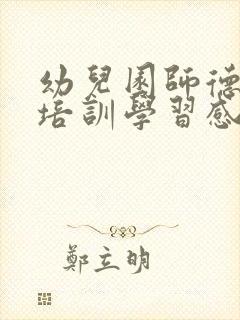 幼兒園師德
培訓學習感
鄭立明